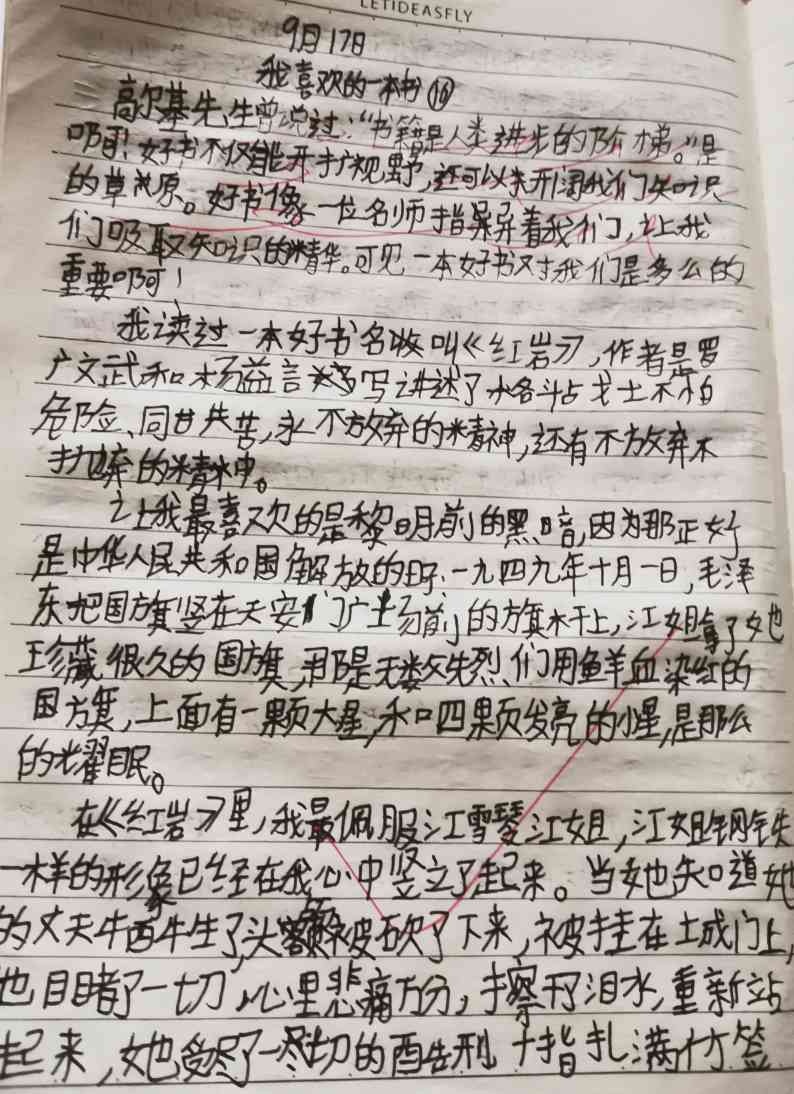 LETIDEASFLY
9月17日
我喜欢的一本书⑯
高尔基先生曾说过:“书籍是人类进步的阶梯。”是
啊!好书不仅能开扩视野,还可以来开阔我们知识
的草原。好书像一位名师指导着我们,让我
们吸取知识的精华。可见一本好书对我们是多么的
重要啊!
我读过一本好书名收叫《红岩》,作者是罗
广文武和杨益言写讲述了各斗占戈士不怕
危险、同甘共苦,永不放弃的精神,还有不放弃不
抛弃的精神。
让我最喜欢的是黎明前的黑暗,因为那正好
是中华人民共和国解放的日子.一九四九年十月一日,毛泽
东把国旗竖在天安门广场前的旗杆上,江姐拿了她
珍藏很久的国旗,那是无数先烈们用鲜血染红的
国旗,上面有一颗大星,和四颗发亮的小星,是那么
的光耀眼。
在《红岩》里,我最佩服江雪琴江姐,江姐钢铁
一样的形象已经在我心中竖立了起来。当她知道她
的丈夫牺牲了,头被砍了下来,被挂在土城门上,
也目睹了一切,心里悲痛万分,擦干泪水,重新站
起来,她受尽了一切的酷刑 十指扎满竹签